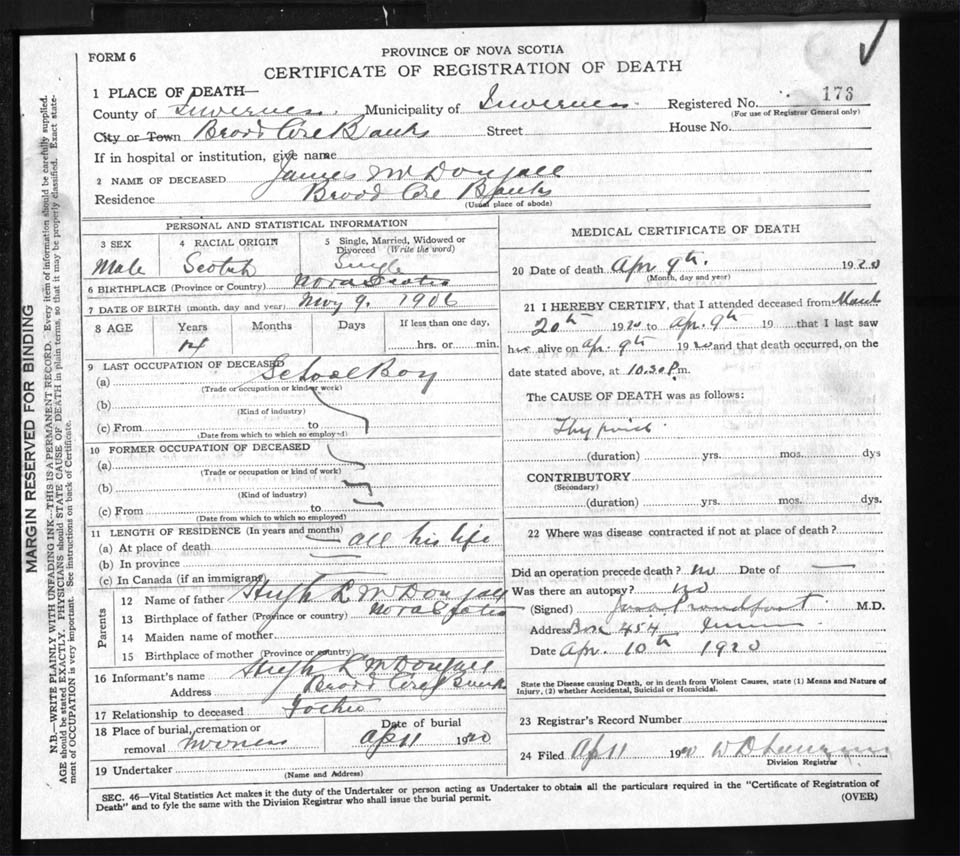 FORM 6
PROVINCE OF NOVA SCOTIA
CERTIFICATE OF REGISTRATION OF DEATH
MARGIN RESERVED FOR BINDING
N.B.—WRITE PLAINLY WITH UNFADING INK—THIS IS A PERMANENT RECORD. Every item of information should be carefully supplied.
AGE should be stated EXACTLY. PHYSICIANS should STATE CAUSE OF DEATH in plain terms, so that it may be properly classified. Exact state-
ment of OCCUPATION is very important. See instructions on back of Certificate.
1 PLACE OF DEATH—
County of Inverness Municipality of Inverness Registered No. 173
(For use of Registrar General only)
City or Town Broad Cove Banks Street House No.
If in hospital or institution, give name
2 NAME OF DECEASED James McDougall
Residence Broad Cove Banks
(Usual place of abode)
PERSONAL AND STATISTICAL INFORMATION
3 SEX Male
4 RACIAL ORIGIN Scotch
5 Single, Married, Widowed or Divorced (Write the word) Single
6 BIRTHPLACE (Province or Country) Nova Scotia
7 DATE OF BIRTH (month, day and year) May 9. 1906
8 AGE Years Months Days If less than one day,
14 hrs. or min.
9 LAST OCCUPATION OF DECEASED
(a) School Boy
(Trade or occupation or kind of work)
(b)
(Kind of industry)
(c) From to
(Date from which to which so employed)
10 FORMER OCCUPATION OF DECEASED
(a)
(Trade or occupation or kind of work)
(b)
(Kind of industry)
(c) From to
(Date from which to which so employed)
11 LENGTH OF RESIDENCE (In years and months)
(a) At place of death all his life
(b) In province
(c) In Canada (if an immigrant)
Parents
12 Name of father Hugh R McDougall
13 Birthplace of father (Province or country) Nova Scotia
14 Maiden name of mother
15 Birthplace of mother (Province or country)
16 Informant's name Hugh R McDougall
Address Broad Cove Banks
17 Relationship to deceased Father
18 Place of burial, cremation or removal Inverness
Date of burial Ap 11 1920
19 Undertaker
(Name and Address)
MEDICAL CERTIFICATE OF DEATH
20 Date of death Apr 9th. 1920
(Month, day and year)
21 I HEREBY CERTIFY, that I attended deceased from March
20th 1920 to Apr. 9th 19 that I last saw
h alive on Apr. 9th 1920 and that death occurred, on the
date stated above, at 10.30 P.m.
The CAUSE OF DEATH was as follows:
(duration) yrs. mos. dys
CONTRIBUTORY
(Secondary)
(duration) yrs. mos. dys.
22 Where was disease contracted if not at place of death?
Did an operation precede death? No Date of
Was there an autopsy? No
(Signed) Proudfoot M.D.
Address Box 454
Date Apr. 10th 1920
State the Disease causing Death, or in death from Violent Causes, state (1) Means and Nature of
Injury, (2) whether Accidental, Suicidal or Homicidal.
23 Registrar's Record Number
24 Filed Ap 11 1920 W D
Division Registrar
SEC. 46—Vital Statistics Act makes it the duty of the Undertaker or person acting as Undertaker to obtain all the particulars required in the "Certificate of Registration of
Death" and to fyle the same with the Division Registrar who shall issue the burial permit.
(OVER)